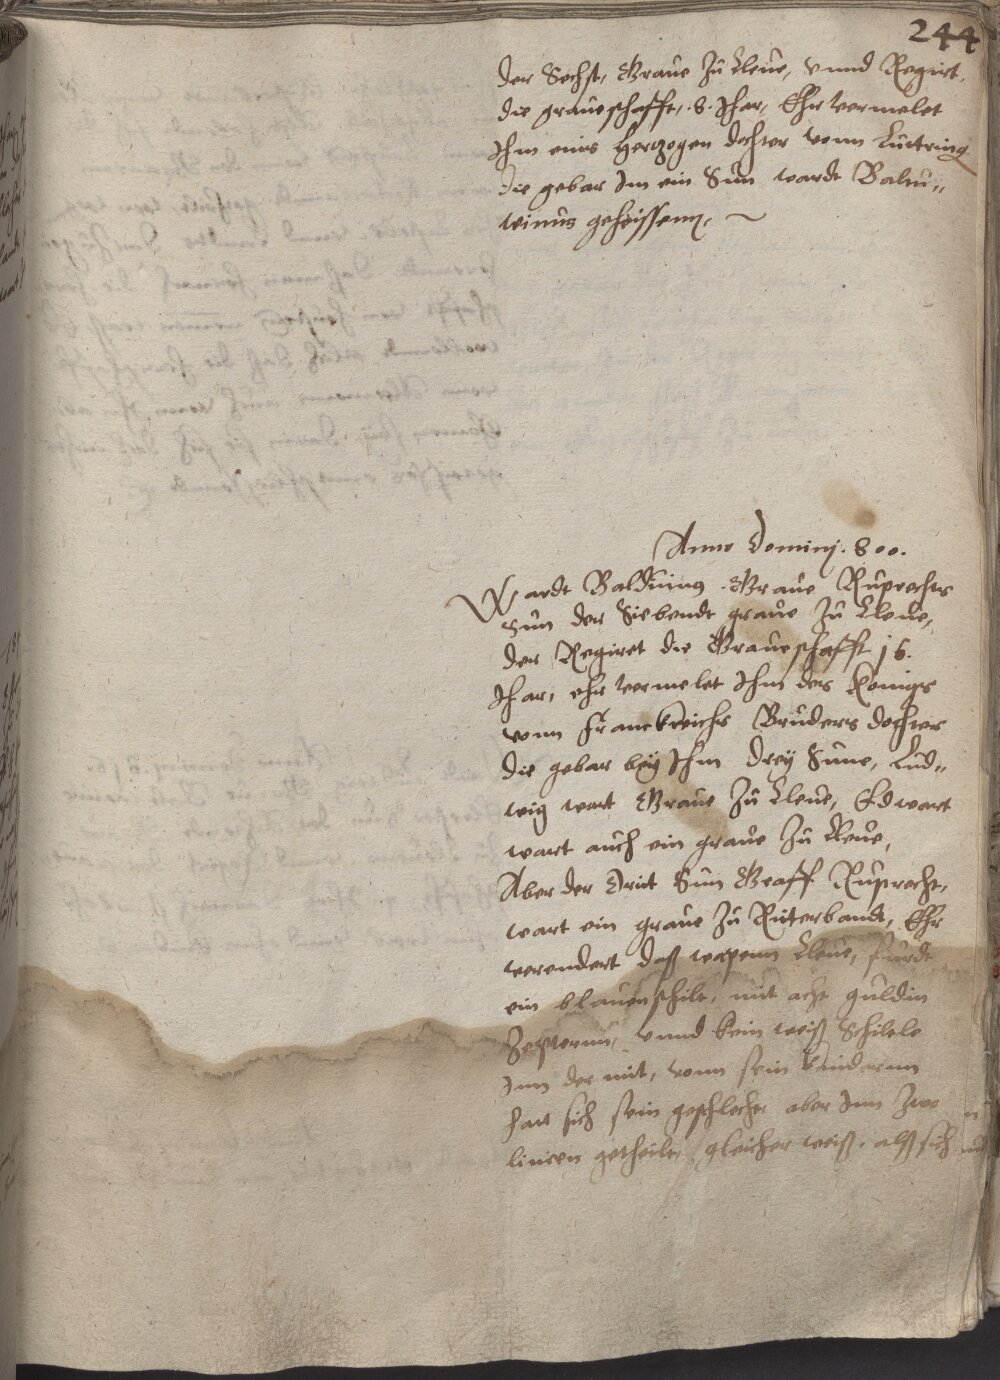 244
der Sechst, Graue zu Cleue, vnnd Regirt,
die graueschafft, .8. Jhar, Ehr vermelet
Jhm eins Hertzogen dochter vonn Luttring
die gebar Jm ein Sun wardt Baldu„
winus geheissenn,
Anno Dominj. 800.
Wardt Balduinus Graue Ruprechts
Sun der Siebendt graue zu Cleue,
der Regiret die Graueschafft 16.
Jhar, ehr vermelet Jhm des Königs
vonn Franckreichs Bruders dochter
die gebar bey Jhm drey Süne, Lud„
wig wart Graue zu Cleue, Edwart
wart auch ein graue zu Cleue,
Aber der drit Sun Graff Ruprecht,
wart ein graue zu Riterbandt, Ehr
verendert daß wapenn Cleue, furdt
ein blauen schilt, mit acht guldin
Zepternn, vnnd kein weiß Schiltle
Jnn der mit, vonn sein kindernn
hatt sich sein geschlecht aber Jnn zwo
linien getheilt, gleicher weiß, alß sich